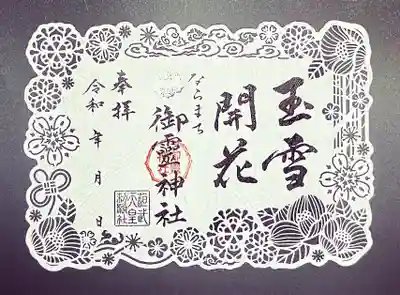 玉雪
開花
ならまち
御靈神社
奉拝
令和 年 月 日